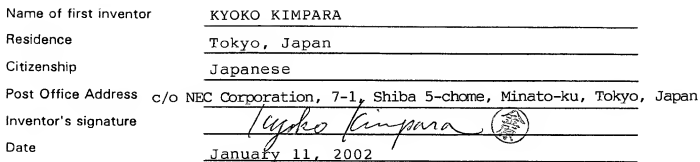 Name of first inventor KYOKO KIMPARA
Residence Tokyo, Japan
Citizenship Japanese
Post Office Address c/o NEC Corporation, 7-1, Shiba 5-chome, Minato-ku, Tokyo, Japan
Inventor's signature Kyoko Kimpara
Date January 11, 2002